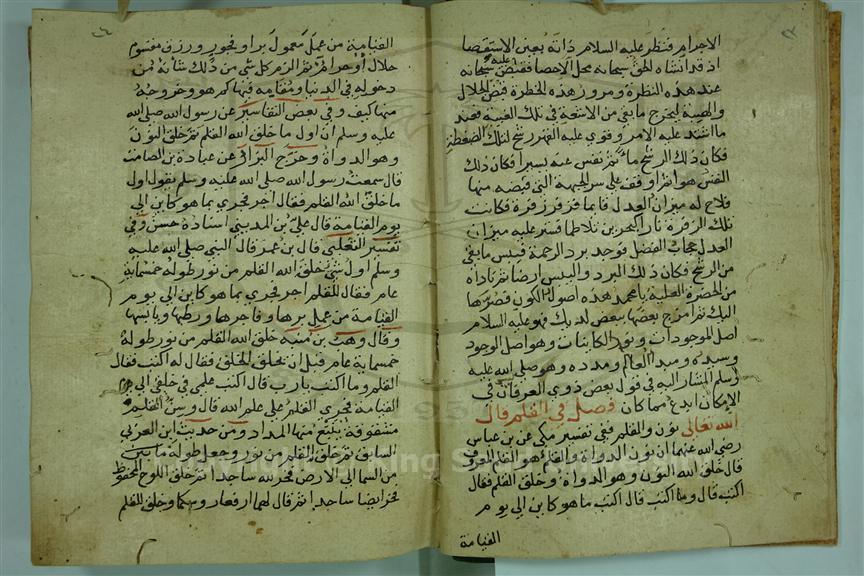 الاجرام فنظر عليه السلام ذاته بعين الاستقصا
اذ قد انشاه الحق سبحانه محل الاحصا فقبض عليه سبحانه
عند هذه النظرة ومرور هذه الخطرة قبض الجلال
والهيبة ليخرج ما بقي من الاشعة في تلك الغيبة فعند
ما اشتد عليه الامر وقوي عليه القهر رشح لتلك الضغطة
فكان ذلك الرشح ماء ثم نفس عنه يسيرا فكان ذلك
النفس هوا ثم اوقفه على سر الجهة التي قبضه منها
فلاح له ميزان العدل قايما فزفر زفرة فكانت
تلك الزفرة نارا فستر عليه ميزان
العدل حجاب الفضل فوجد برد الرحمة فيبس ما بقي
من الرشح فكان ذلك البرد واليبس ارضا ثم ناداه
من الحضرة العلية يا محمد هذه اصول الكون فصرها
اليك ثم امزج بعضها ببعض لديك فهو عليه السلام
اصل الموجودات ونور الكاينات وهو اصل الوجود
وسيده ومبدا العالم ومدده وهو صلى الله عليه
وسلم المشار اليه في قول بعض ذوي العرفان في
الامكان ابدع مما كان فصل في القلم قال
الله تعالى نون والقلم ففي تفسير مكي عن بن عباس
رضي الله عنهما ان نون الدواة والقلم هو القلم المعروف
قال خلق الله النون وهو الدواة وخلق القلم فقال
اكتب قال وما اكتب قال اكتب ما هو كاين الى يوم
القيامة
القيامة من عمل معمول بر او فجور ورزق مقسوم
حلال او حرام ثم الزم كل شي من ذلك شانه من
دخوله في الدنيا ومقامه فيها كم هو وخروجه
منها كيف وفي بعض التفاسير عن رسول الله صلى الله
عليه وسلم ان اول ما خلق الله القلم ثم خلق النون
وهو الدواة وخرج البزار عن عبادة بن الصامت
قال سمعت رسول الله صلى الله عليه وسلم يقول اول
ما خلق الله القلم فقال اجر فجري بما هو كاين الى
يوم القيامة قال علي بن المديني اسناده حسن وفي
تفسير الثعلبي قال بن عمر قال النبي صلى الله عليه
وسلم اول شي خلق الله القلم من نور طوله خمسماية
عام فقال للقلم اجر فجري بما هو كاين الى يوم
القيامة من عمل برها وفاجرها ورطبها ويابسها
وقال وهب بن منبه خلق الله القلم من نور طوله
خمسماية عام قبل ان يخلق الخلق فقال له اكتب فقال
القلم وما اكتب يا رب قال اكتب علمي في خلقي الى يوم
القيامة فجري القلم على علم الله قال وسن القلم
مشقوقة ينبع منها المداد ومن حديث ابن العربي
السابق ثم خلق القلم من نور وجعل طوله ما بين
من السما الى الارض فخر لله ساجدا ثم خلق اللوح المحفوظ
فخر ايضا ساجدا ثم قال لهما ارفعا وخلق للقلم